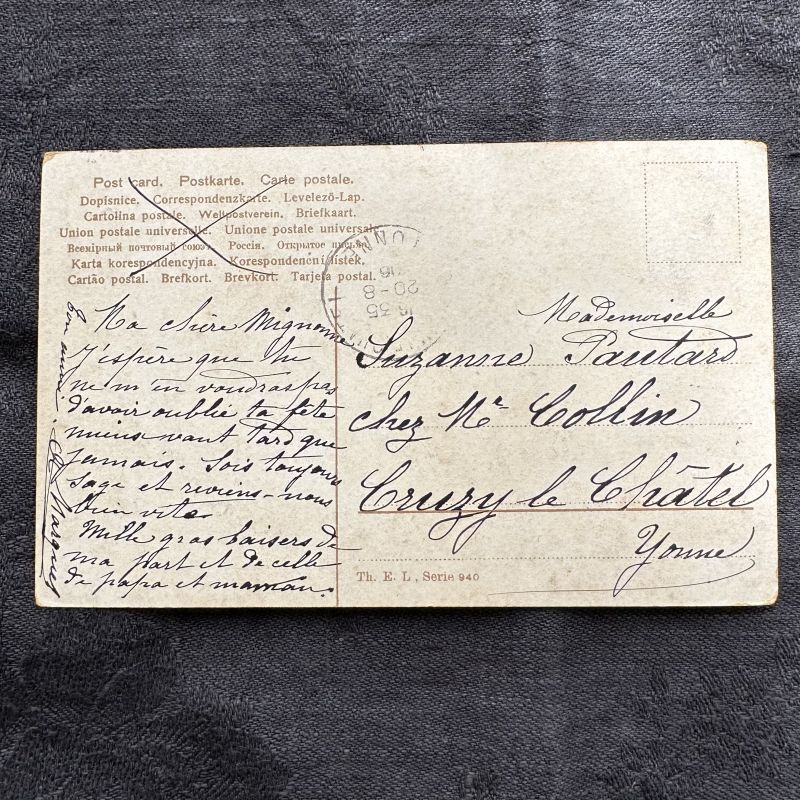 Post card. Postkarte. Carte postale.
Dopisnice. Correspondenzkarte. Levelező-Lap.
Cartolina postale. Weltpostverein. Briefkaart.
Union postale universelle. Unione postale universale.
Всемірный почтовый союзъ. Россія. Открытое письмо.
Karta korespondencyjna. Korespondenční lístek.
Cartão postal. Brefkort. Brevkort. Tarjeta postal.
Ma chère Mignonne
J'espère que tu
ne m'en voudras pas
d'avoir oublié ta fête
mieux vaut tard que
jamais. Sois toujours
sage et reviens-nous
bien vite
Mille gros baisers de
ma part et de celle
de papa et maman.
Ton amie.
YONNE
16 35
20-8
Mademoiselle
Suzanne Pautard
chez Mr Collin
Cruzy le Châtel
Yonne
Th. E. L., Serie 940